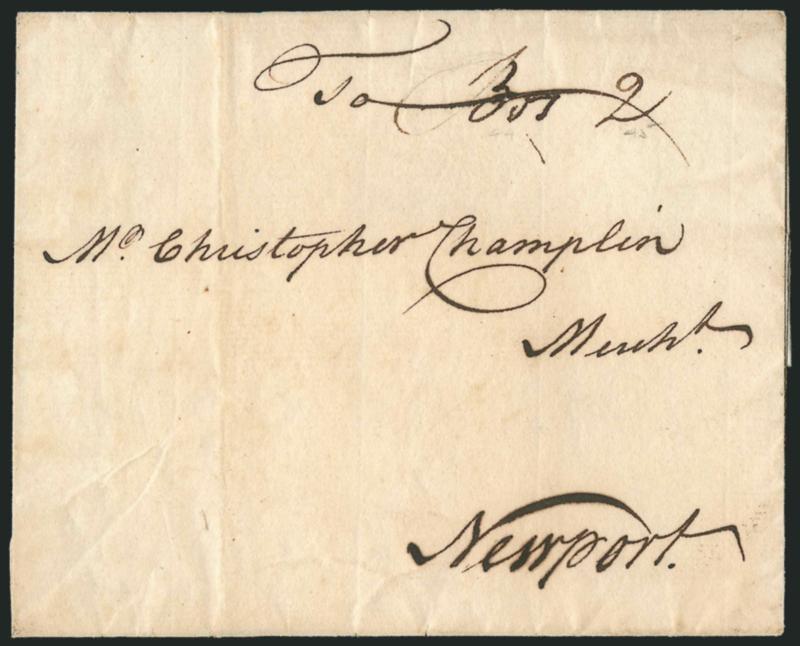 To Bos 2
Mr. Christopher Champlin
Mercht.
Newport.